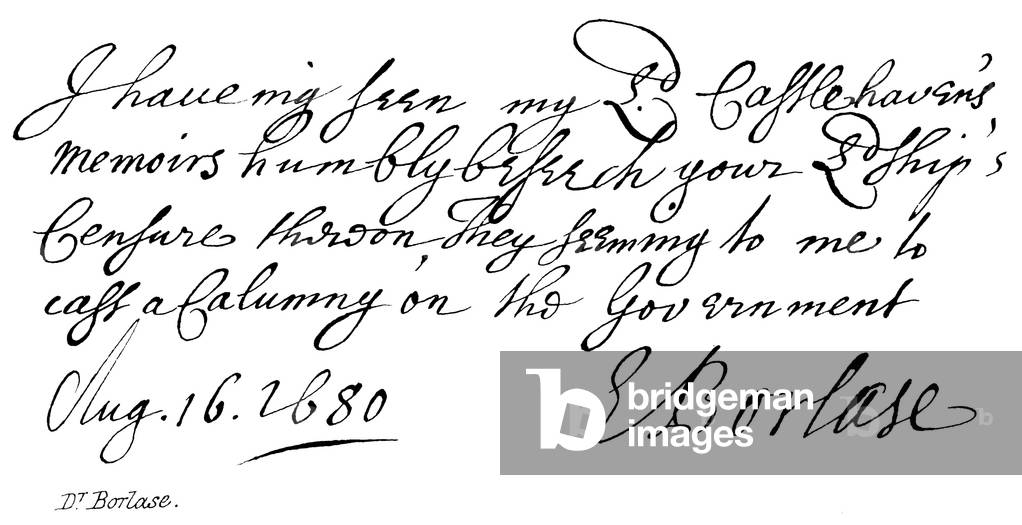 I haueing seen my Ld Castlehaven's,
Memoirs humbly beseech your Ldship's
Censure thereon, They seeming to me to
cast a Calumny on the Government
Aug. 16. 1680 E Borlase
bridgeman images
Dr Borlase.